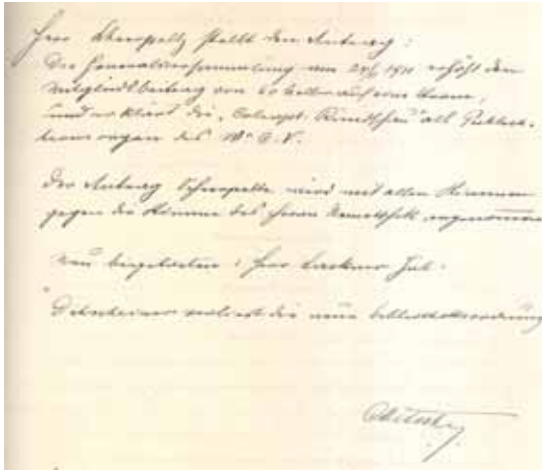 Herr Scherpeltz stellt den Antrag:
Die Generalversammlung vom 24/I 1911 erhöht den
Mitgliedsbeitrag von 60 Heller auf eine Krone,
und erklärt die „Coleopt. Rundschau" als Publica-
tionsorgan des W. C. V.
Der Antrag Scherpeltz wird mit allen Stimmen
gegen die Stimme des Herrn angenommen
neu beigetreten: Herr Jul.
verliest die neue Bibliotheksordnung